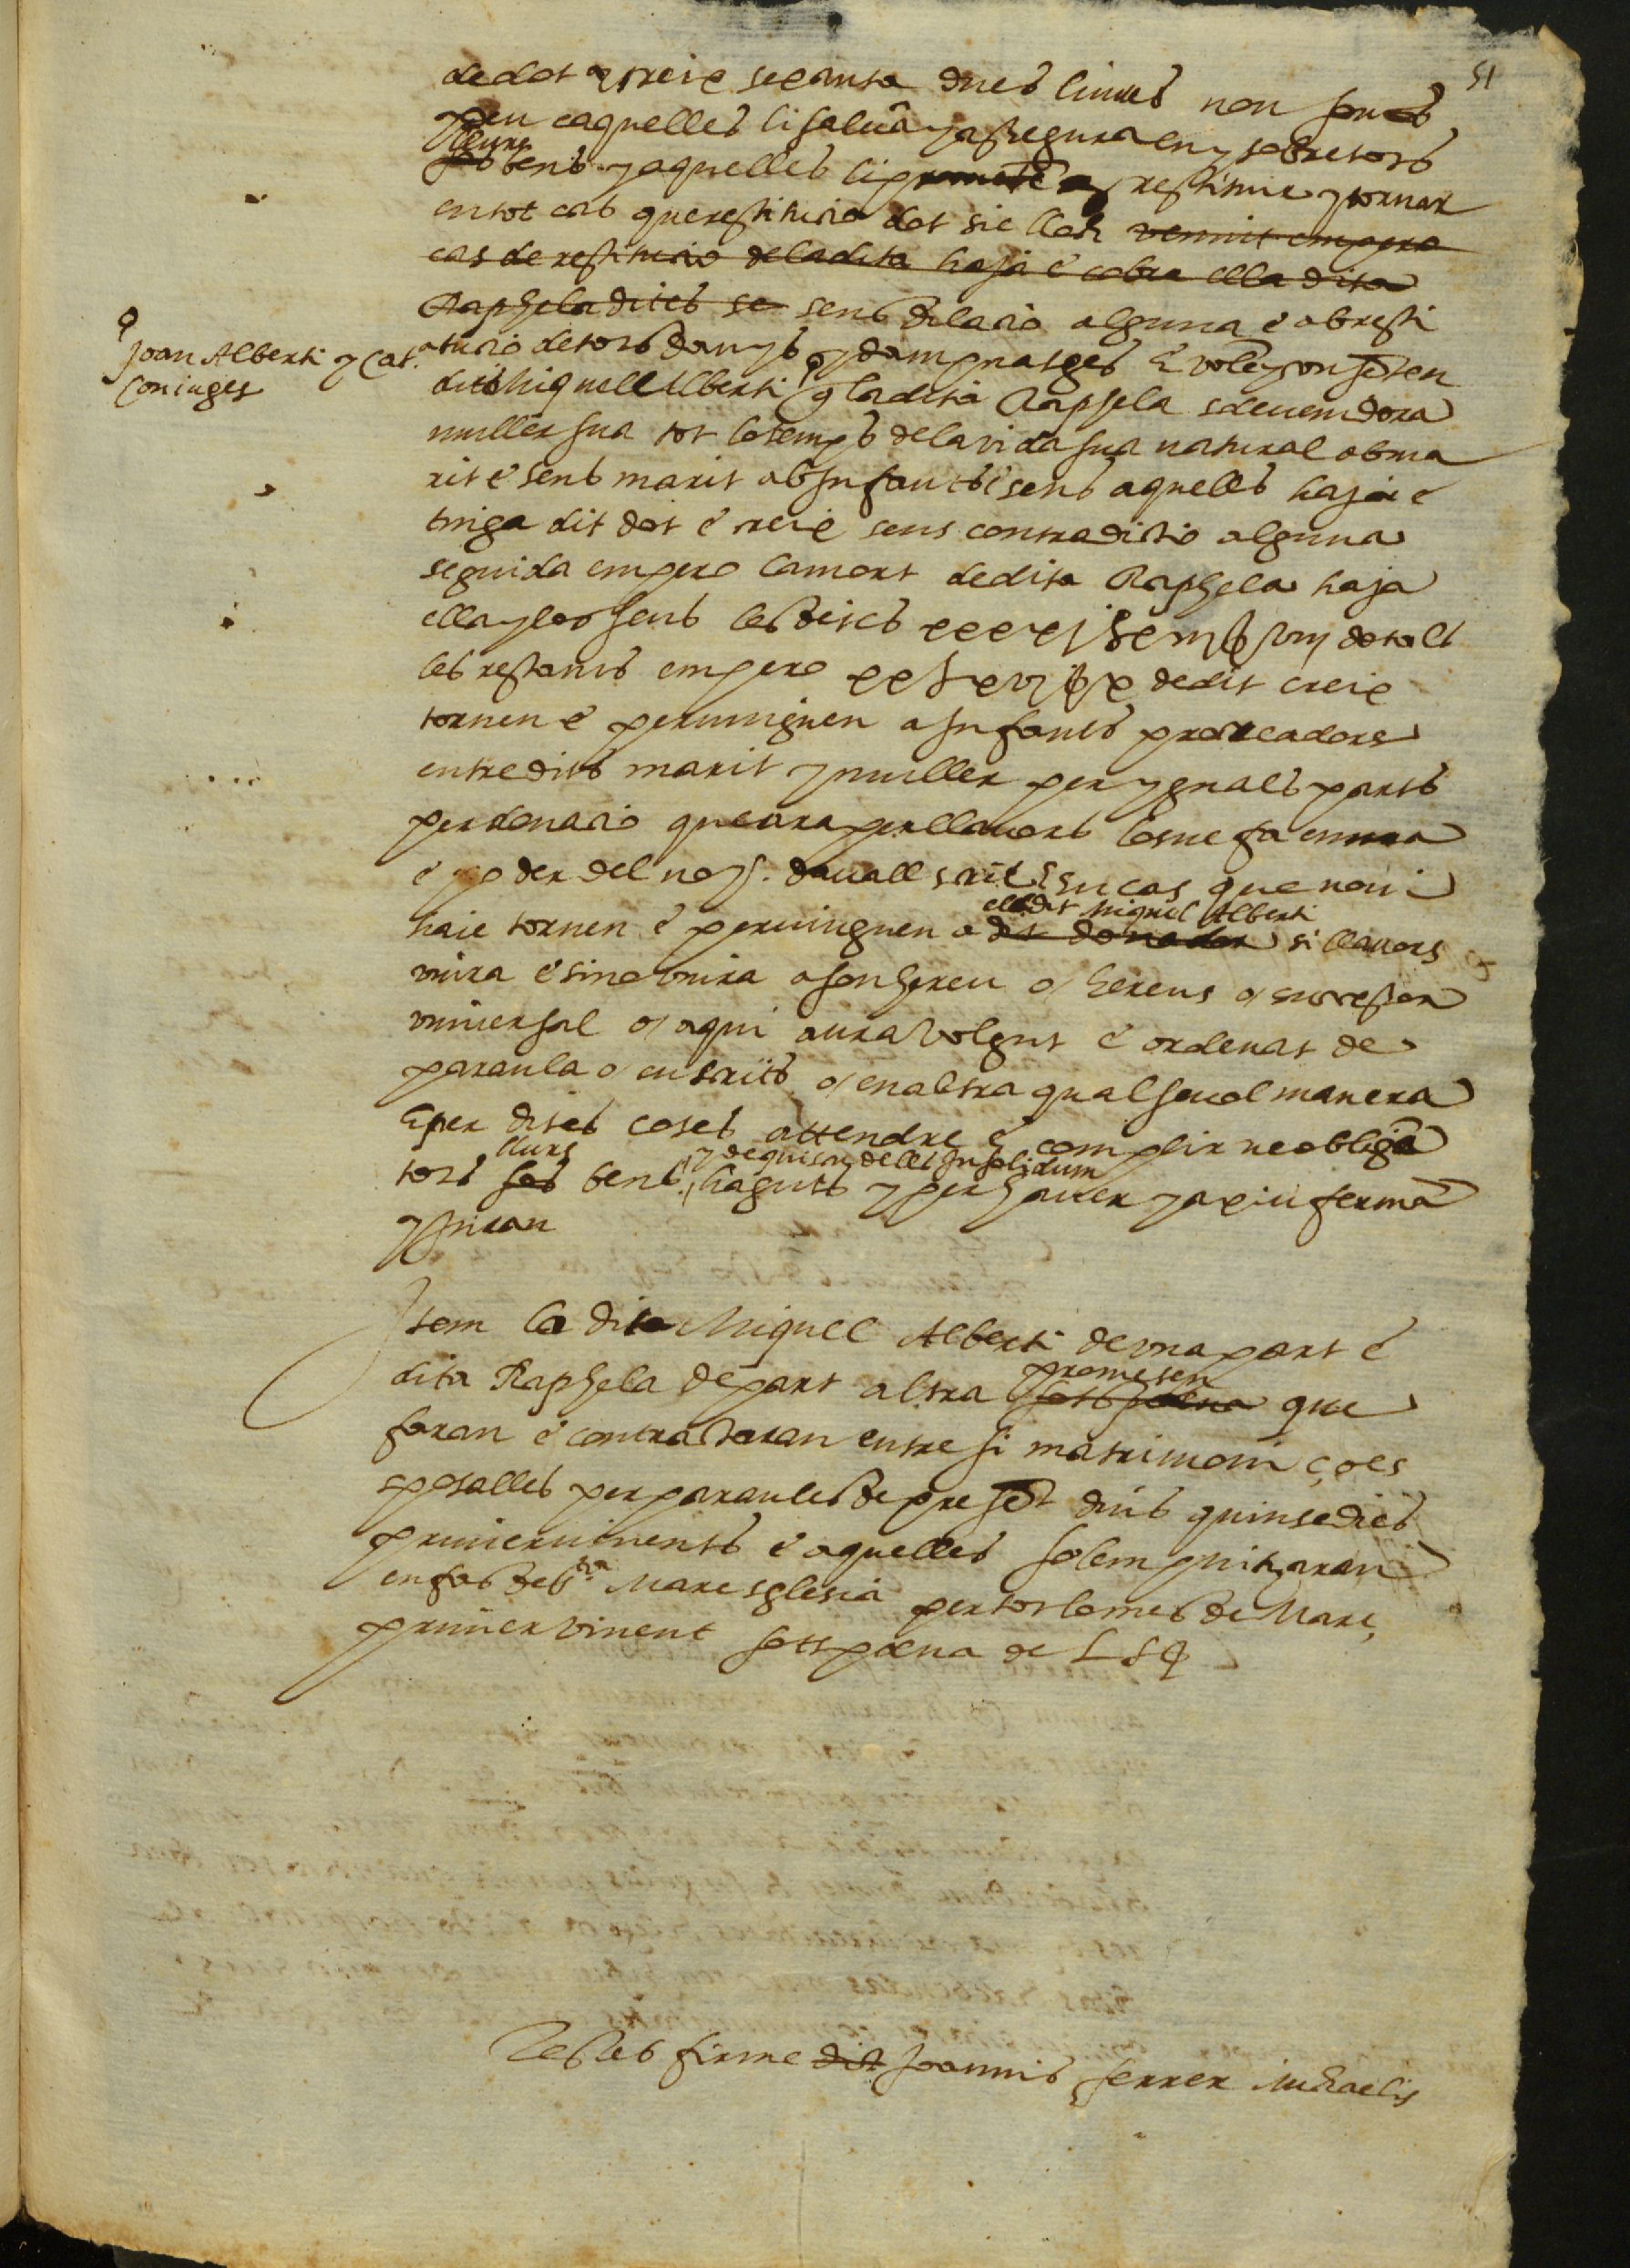 51
dedot e creix sexanta dues liures non sous
peu eaquelles li salua y assegura en y sobre tots
llurs
sos bens y aquelles li promete restituir y tornar
en tot cas que restitucio dot sie lloch venint empero
cas de restitucio de la dita haja e cobre ella dita
Raphela dites se sens dilacio alguna e ab resti
tucio de tots danys y dampnatges E vol e consenten
Joan Alberti y Cat.
coniuges
dit Miquel Alberti q la dita Raphela sdeuenidora
muller sua tot lo temps de la vida sua natural ab ma
rit e sens marit ab Infants e sens aquells haja e
tinga dit dot e creix sens contradictio alguna
seguida empero la mort de dita Raphela haja
ella y los seus les dites dotals
les restants empero de dit creix
tornen e peruinguen a Infants procreadors
entre dits marit y muller per yguals parts
per donacio que ara per llauors los ne fa en ma
e poder del not. dauall scrit E in cas que noni
ell dit Miquel Alberti
haie tornen e peruinguen a dit donador si llauors
viura e sino viura a son hereu o hereus o successor
vniuersal o aqui aura volgut e ordenat de
paraula o en scrits o en altra qualseuol manera
E per dites coses attendre e complir ne obliga
llurs
y de quiscu dells Insolidum
tots sos bens haguts y per hauer y axi u ferma
y juran
Item lo dit Miquel Alberti de vna part e
prometen
dita Raphela de part altra sots pena que
faran e contractaran entre si matrimoni ço es
sposalles per paraules de present dins quinse dies
primer vinents e aquelles solempnitzaran
en fas de sta Mare Sglesia per tot lo mes de Març
primer vinent sots pena de L ss
Testes firme dit Joannis ferrer Michaelis